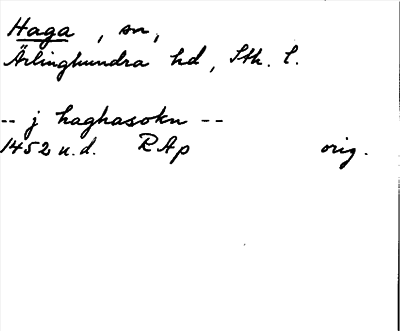 Haga, sn,
Ärlinghundra hd, Sth. l.
-- j haghasokn --
1452 u.d. RAp orig.